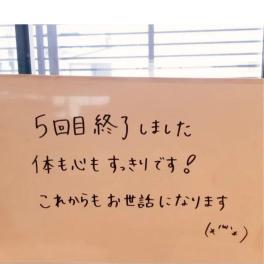 5回目終了しました
体も心もすっきりです!
これからもお世話になります
(*'ω'*)